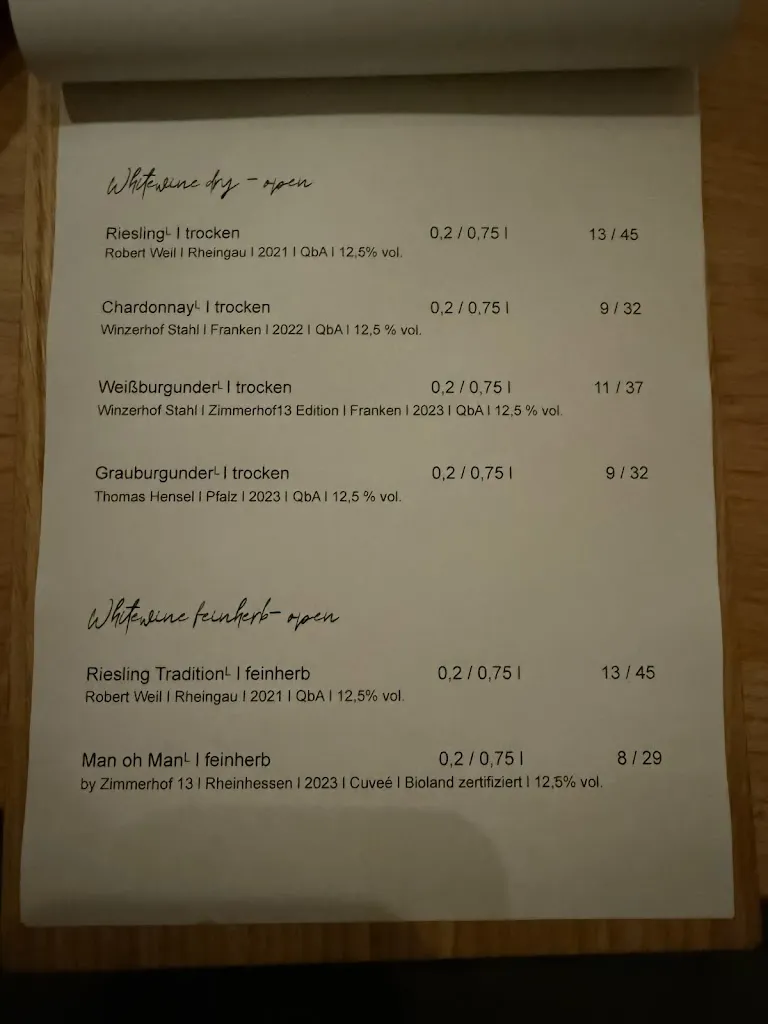 Whitewine dry – open
Riesling^L | trocken 0,2 / 0,75 l 13 / 45
Robert Weil | Rheingau | 2021 | QbA | 12,5% vol.
Chardonnay^L | trocken 0,2 / 0,75 l 9 / 32
Winzerhof Stahl | Franken | 2022 | QbA | 12,5 % vol.
Weißburgunder^L | trocken 0,2 / 0,75 l 11 / 37
Winzerhof Stahl | Zimmerhof13 Edition | Franken | 2023 | QbA | 12,5 % vol.
Grauburgunder^L | trocken 0,2 / 0,75 l 9 / 32
Thomas Hensel | Pfalz | 2023 | QbA | 12,5 % vol.
Whitewine feinherb– open
Riesling Tradition^L | feinherb 0,2 / 0,75 l 13 / 45
Robert Weil | Rheingau | 2021 | QbA | 12,5% vol.
Man oh Man^L | feinherb 0,2 / 0,75 l 8 / 29
by Zimmerhof 13 | Rheinhessen | 2023 | Cuveé | Bioland zertifiziert | 12,5% vol.